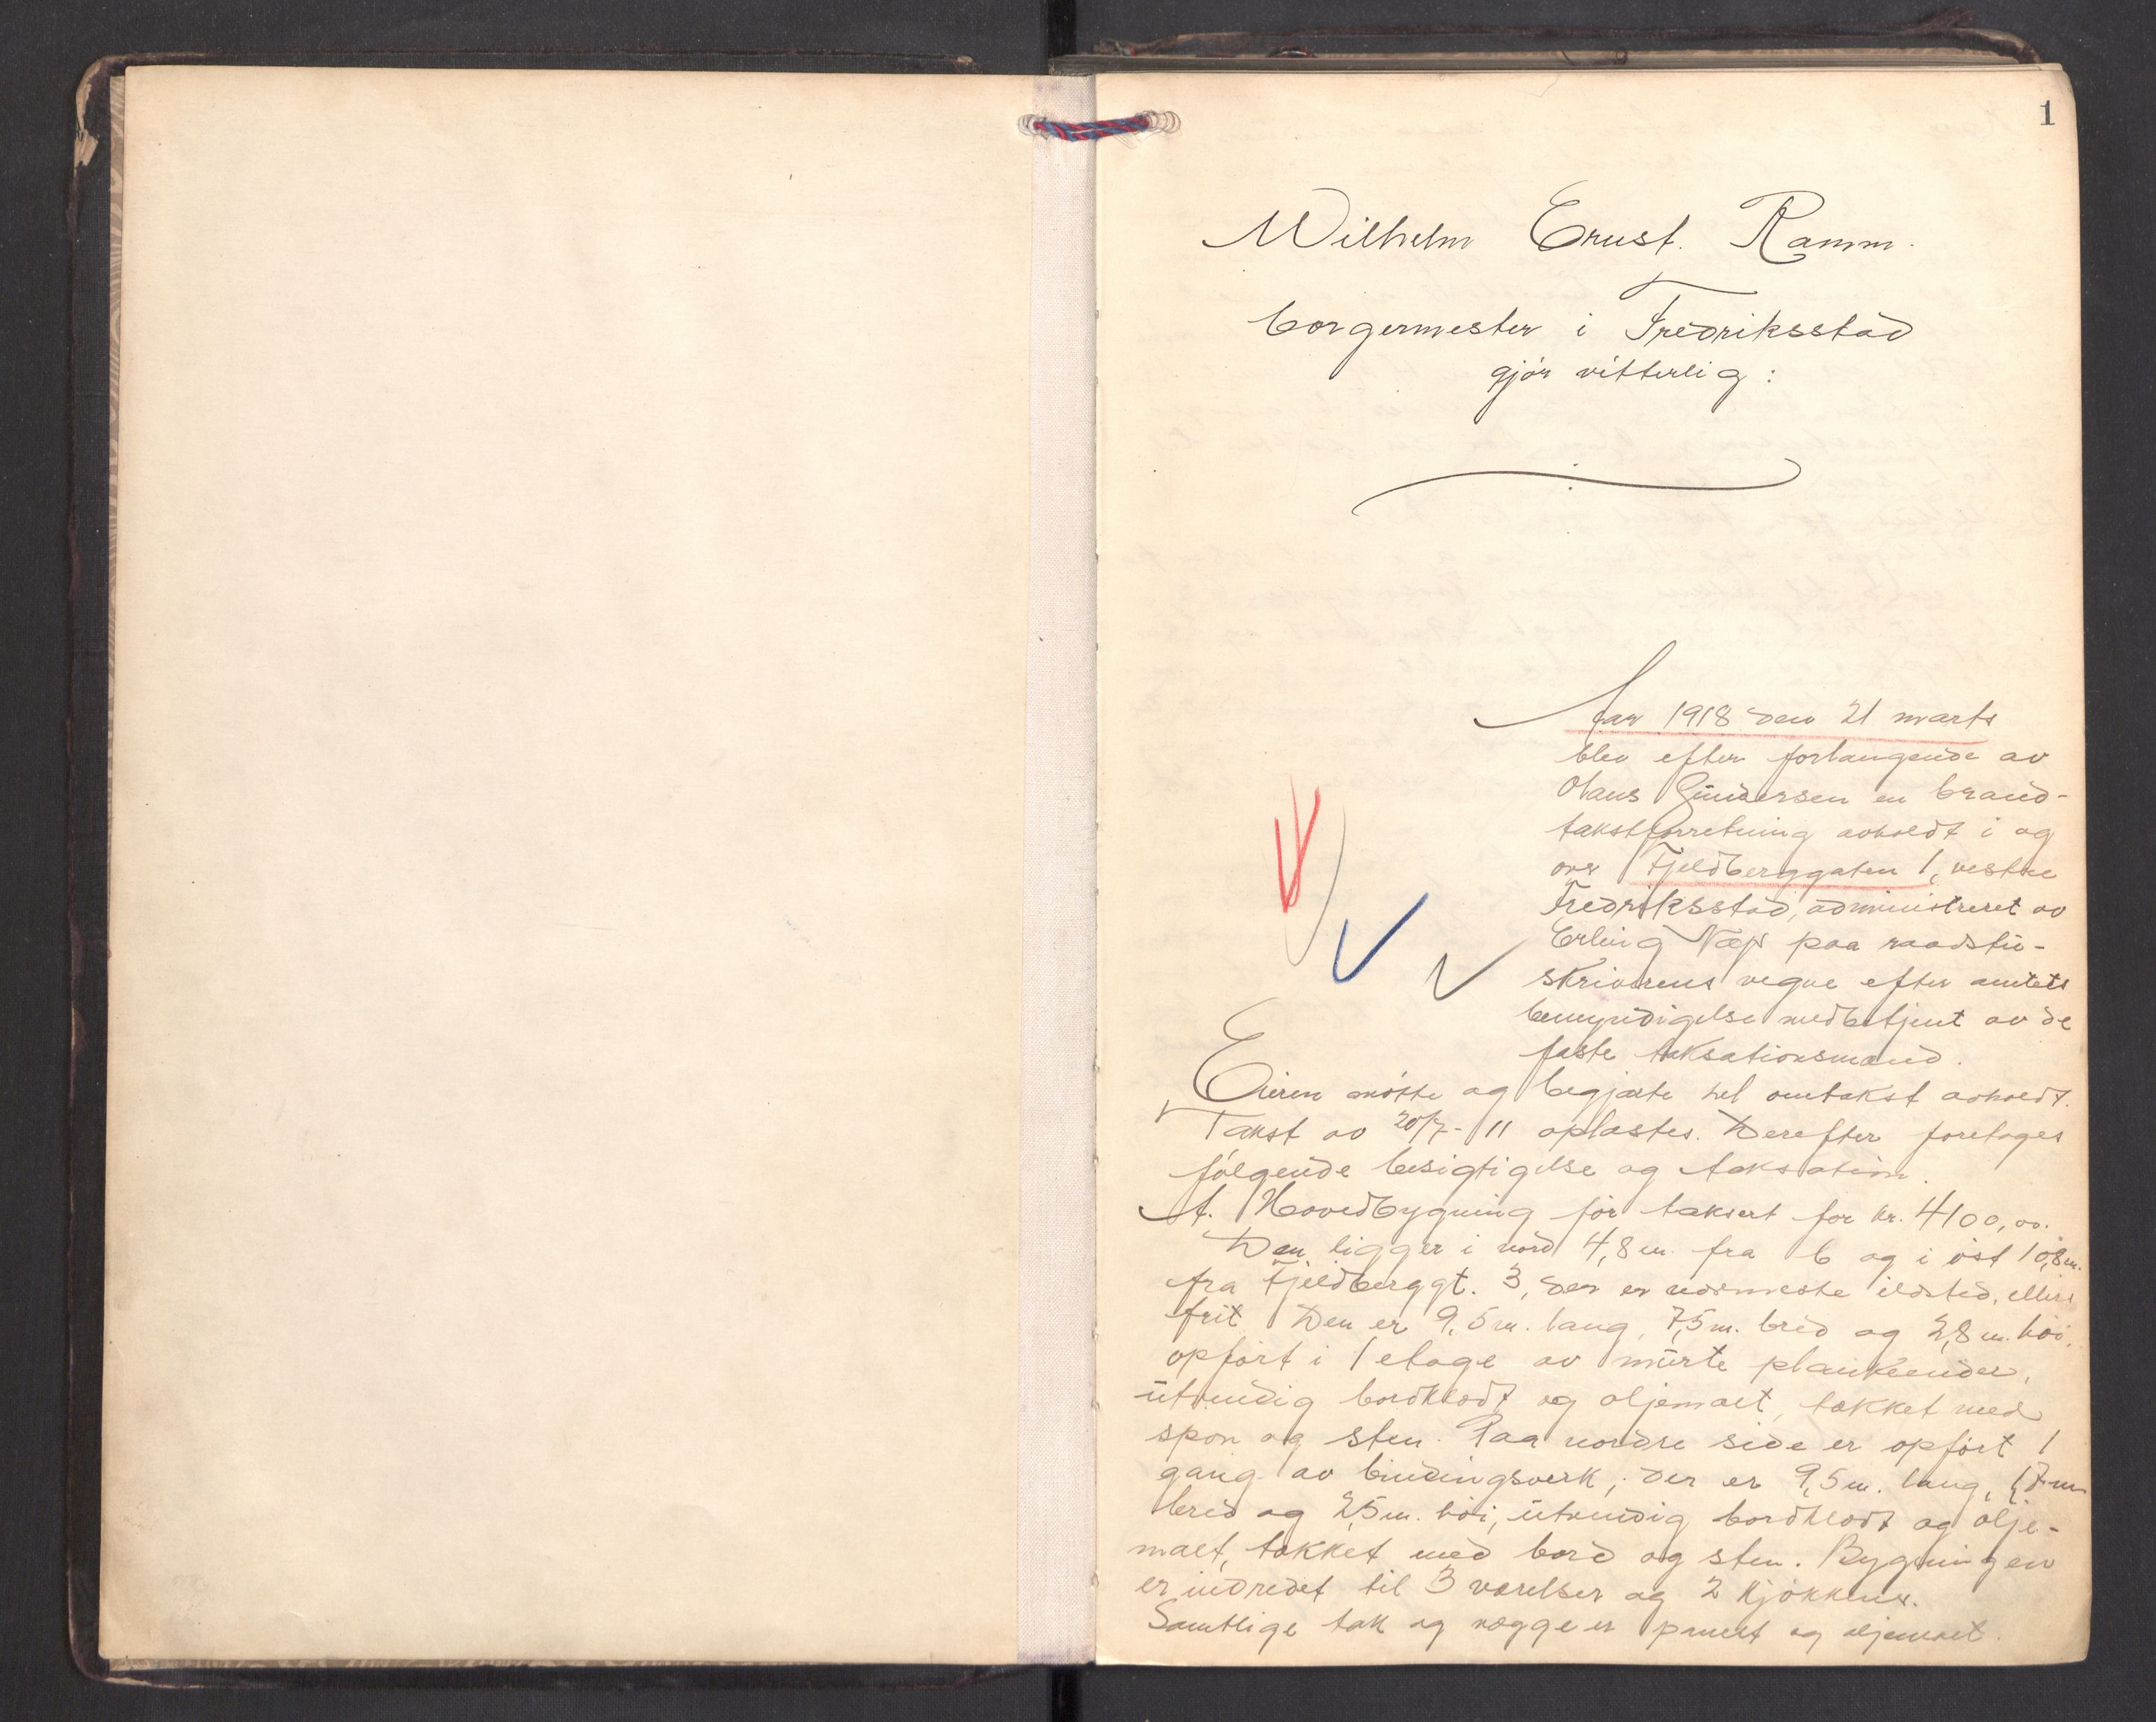 1
Wilhelm Ernst. Ramm.
borgermester i Fredriksstad
gjør vitterlig:
Aar 1918 den 21 marts
blev efter forlangende av
Olaus Gundersen en brand-
takstforretning avholdt i og
over Fjeldberggaten 1, vestre
Fredriksstad, administreret av
Erling paa raadstu-
skriverens vegne efter amtets
bemyndigelse medbetjent av de
faste taksationsmænd.
Eieren møtte og begjærte hel omtakst avholdt.
Takst av 20/7-11 oplæstes. Derefter foretages
følgende besigtigelse og taksation.
A. Hovedbygning før taksert for kr. 4100,00.
Den ligger i nord 4,8 m. fra b og i øst 10,8 m.
fra Fjeldberggt. 3, der er nærmeste ildsted, ellers
frit Den er 9,5 m. lang, 7,5 m. bred og 2,8 m. høi,
opført i 1 etage av murte plankeender,
utvendig bordklædt og oljemalt, tækket med
spon og sten. Paa nordre side er opført 1
gang av bindingsverk, der er 9,5 m. lang, 1,7 m
bred og 2,5 m. høi, utvendig bordklædt og olje-
malt, tækket med bord og sten. Bygningen
er indredet til 3 værelser og 2 kjøkkener.
Samtlige tak og vægge er panelt og oljemalt.